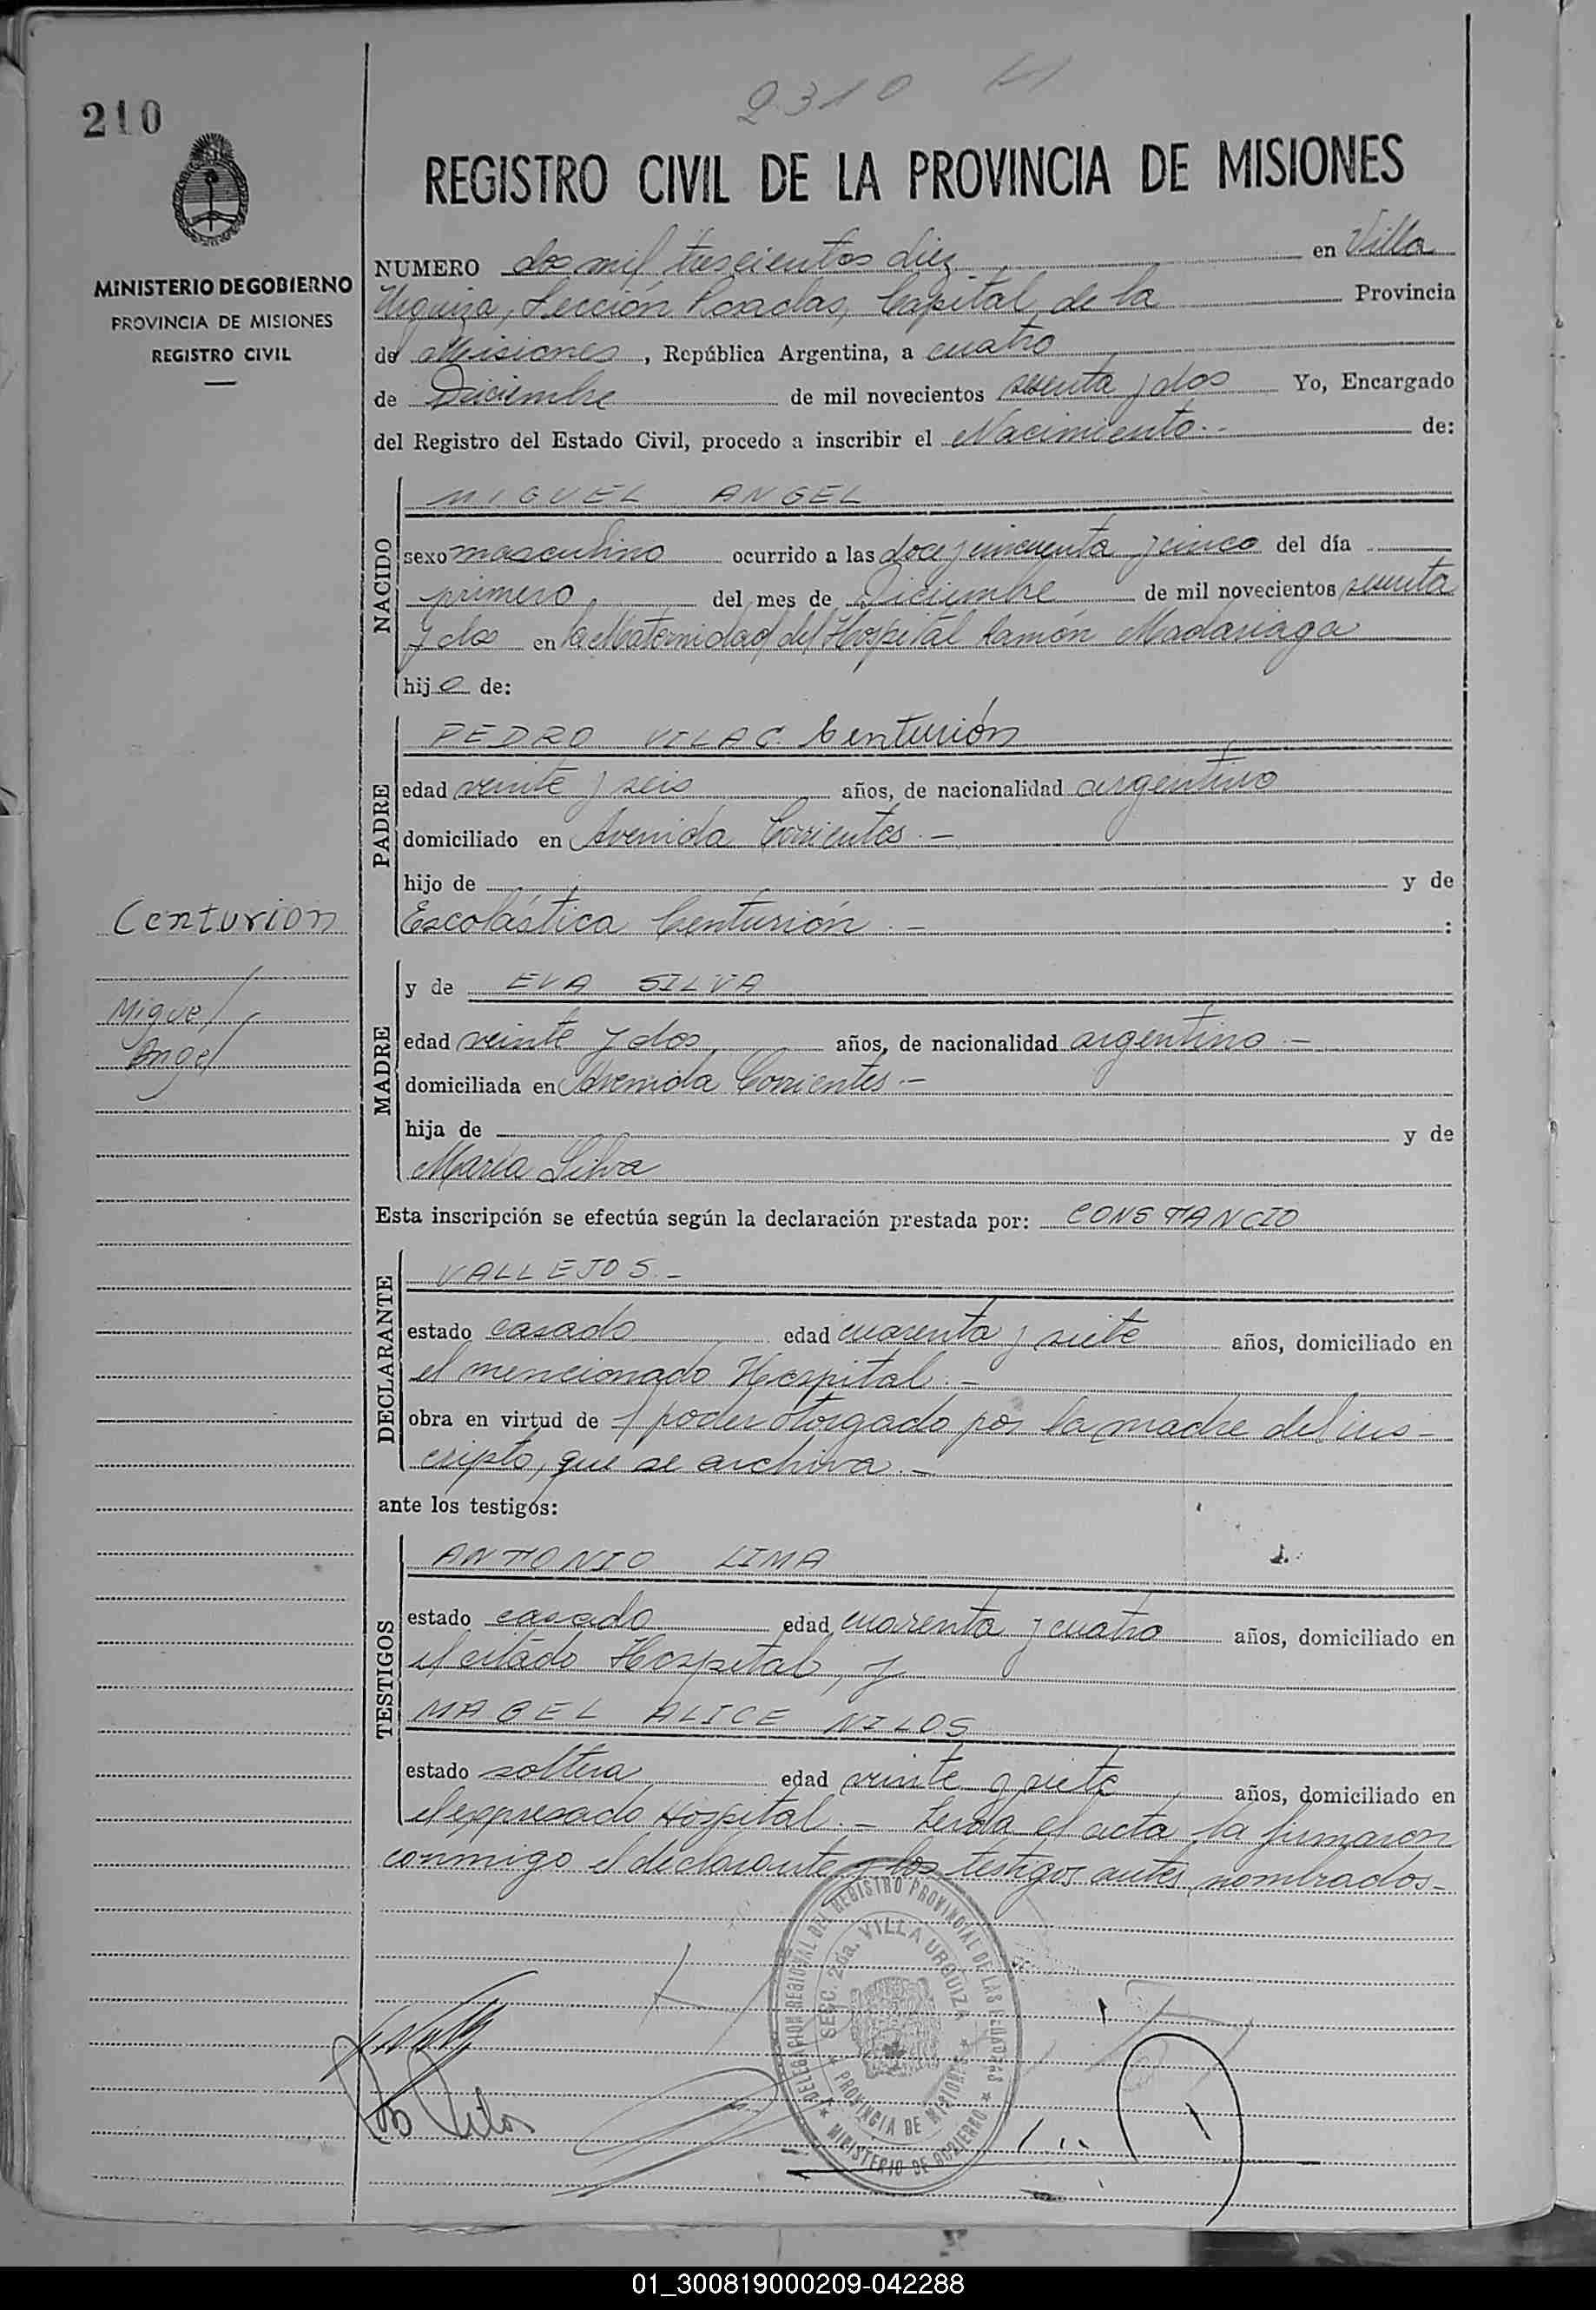 2310
210
REGISTRO CIVIL DE LA PROVINCIA DE MISIONES
MINISTERIO DE GOBIERNO
PROVINCIA DE MISIONES
REGISTRO CIVIL
NUMERO dos mil trescientos diez en Villa
Urquiza, Sección Posadas, Capital de la Provincia
de Misiones, República Argentina, a cuatro
de Diciembre de mil novecientos sesenta y dos Yo, Encargado
del Registro del Estado Civil, procedo a inscribir el Nacimiento.- de:
NACIDO
MIGUEL ANGEL
sexo masculino ocurrido a las doce y cincuenta y cinco del día
primero del mes de Diciembre de mil novecientos sesenta
y dos en la Maternidad del Hospital Ramón Madariaga
hijo de:
PADRE
PEDRO Centurión
edad veinte y seis años, de nacionalidad argentino
domiciliado en Avenida Corrientes.-
hijo de y de
Escolástica Centurión.- :
Centurion
Miguel
Angel
MADRE
y de EVA SILVA
edad veinte y dos años, de nacionalidad argentina.-
domiciliada en Avenida Corrientes.-
hija de y de
María Silva
Esta inscripción se efectúa según la declaración prestada por: CONSTANCIO
DECLARANTE
VALLEJOS.-
estado casado edad cuarenta y siete años, domiciliado en
el mencionado Hospital.-
obra en virtud de poder otorgado por la madre del ins-
cripto, que se archiva.-
ante los testigos:
TESTIGOS
ANTONIO LIMA
estado casado edad cuarenta y cuatro años, domiciliado en
el citado Hospital, y
MABEL ALICE NILOS
estado soltera edad veinte y siete años, domiciliado en
el expresado Hospital.- Leída el acta, la firmaron
conmigo el declarante y los testigos antes nombrados-
DELEGACION REGIONAL DEL REGISTRO PROVINCIAL DE LAS PERSONAS
SECC. 2da. VILLA URQUIZA
PROVINCIA DE MISIONES
MINISTERIO DE GOBIERNO
01_300819000209-042288